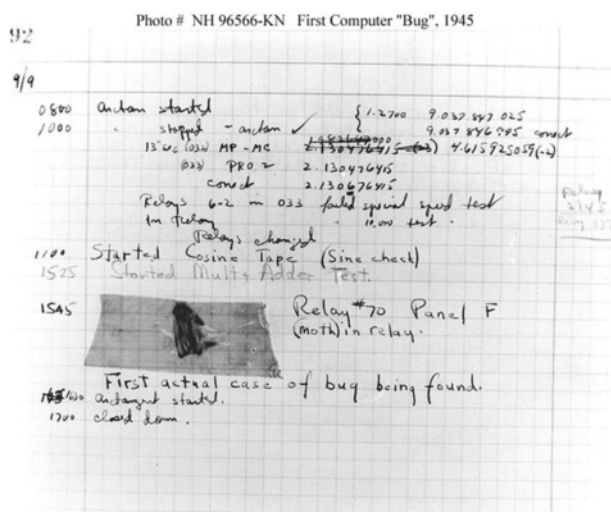 Photo # NH 96566-KN First Computer "Bug", 1945
92
9/9
0800 antan started { 1.2700 9.037 847 025
1000 " stopped - antan ✓ 9.037 846 995 conect
13"uc (032) MP - MC 2.130476415 (-3) 4.615925059(-2)
(033) PRO 2 2.130476415
conect 2.130676415
Relays 6-2 in 033 failed special speed test
in Relay " 10,000 test .
Relays changed
1100 Started Cosine Tape (Sine check)
1525 Started Mult + Adder Test.
1545 Relay #70 Panel F
(moth) in relay.
First actual case of bug being found.
1630 antangent started.
1700 closed down.